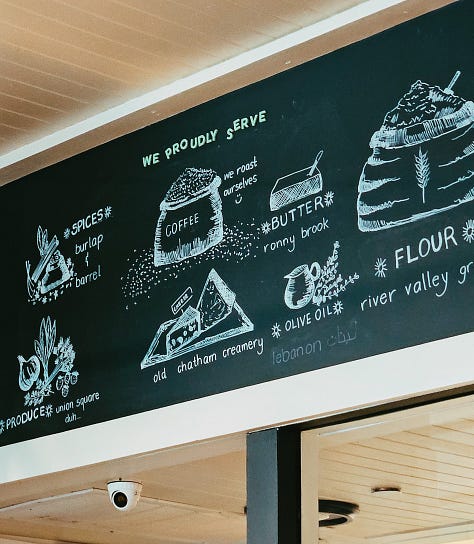 WE PROUDLY SERVE
*SPICES*
burlap
&
barrel
COFFEE
we roast
ourselves
*BUTTER*
ronny brook
*FLOUR*
river valley gr
CHEESE
old chatham creamery
*OLIVE OIL*
lebanon لبنان
*PRODUCE*
union square
duh...